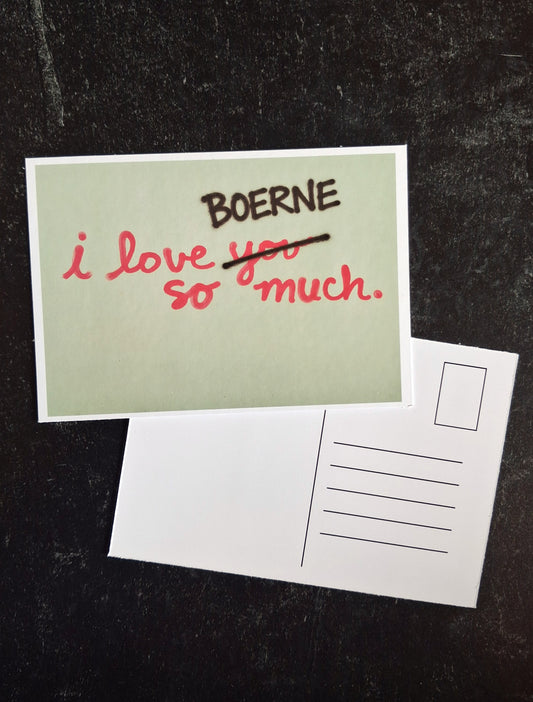 BOERNE
i love you
so much.